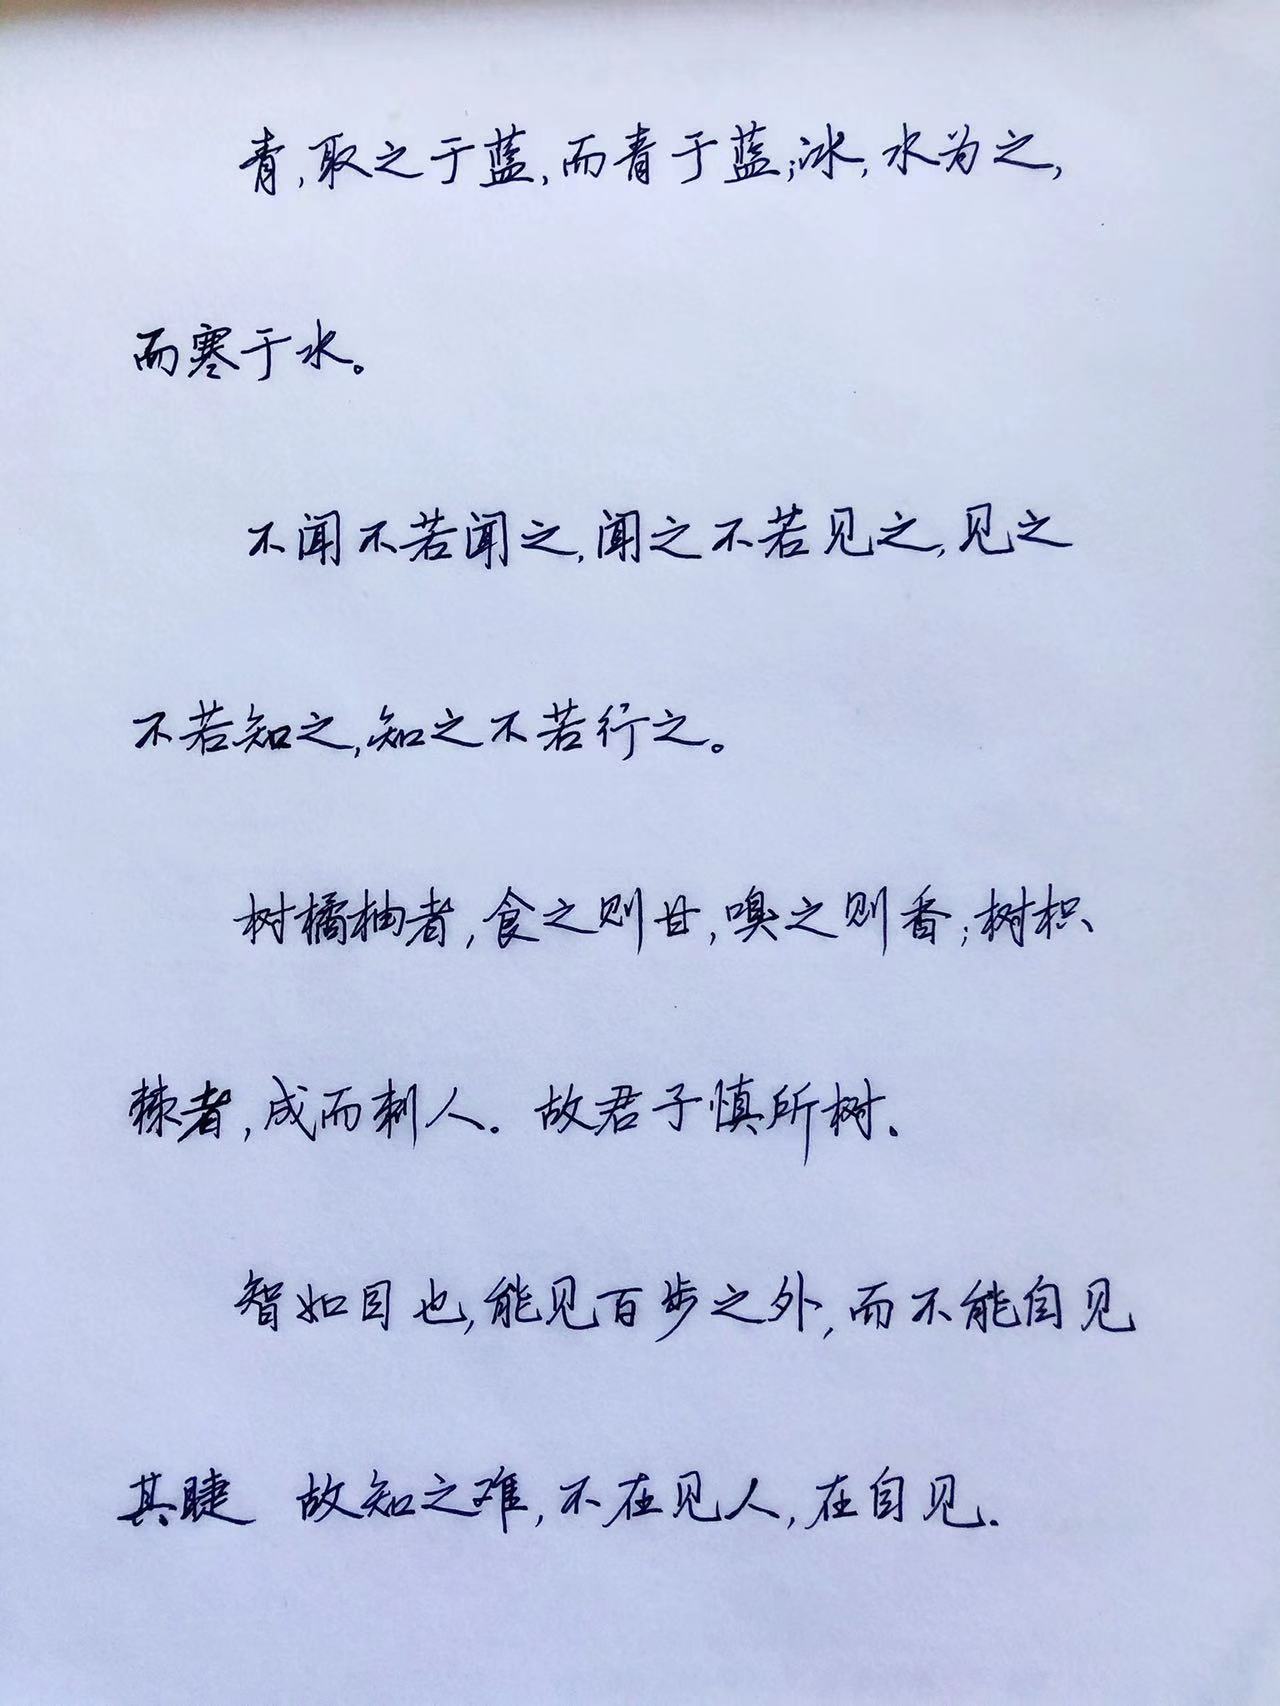 青,取之于蓝,而青于蓝;冰,水为之,
而寒于水。
不闻不若闻之,闻之不若见之,见之
不若知之,知之不若行之。
树橘柚者,食之则甘,嗅之则香;树枳
棘者,成而刺人.故君子慎所树.
智如目也,能见百步之外,而不能自见
其睫 故知之难,不在见人,在自见.